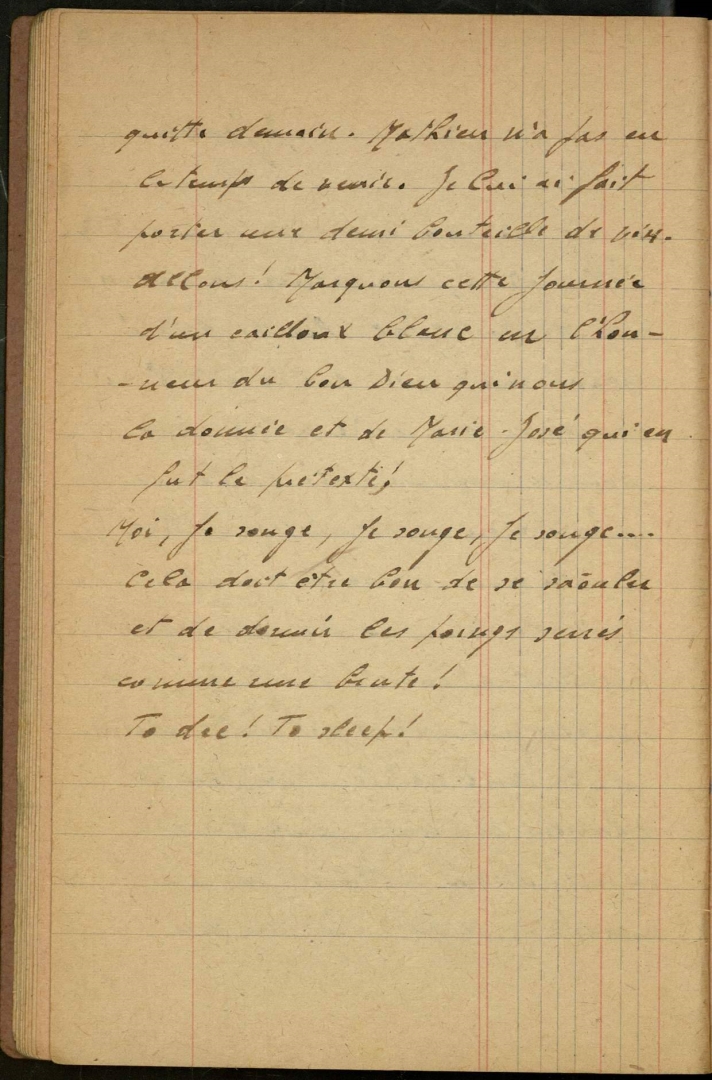 quitte demain. Mathieu n'a pas eu
le temps de venir. Je lui ai fait
porter une demi bouteille de vin.
allons! Marquons cette journée
d'un cailloux blanc en l'hon-
-neur du bon Dieu qui nous
la donnée et de Marie-José qui en
fut le prétexte!
Moi, je songe, je songe, je songe....
Cela doit être bon de se saôuler
et de dormir les poings serrés
comme une brute!
To die! To sleep!